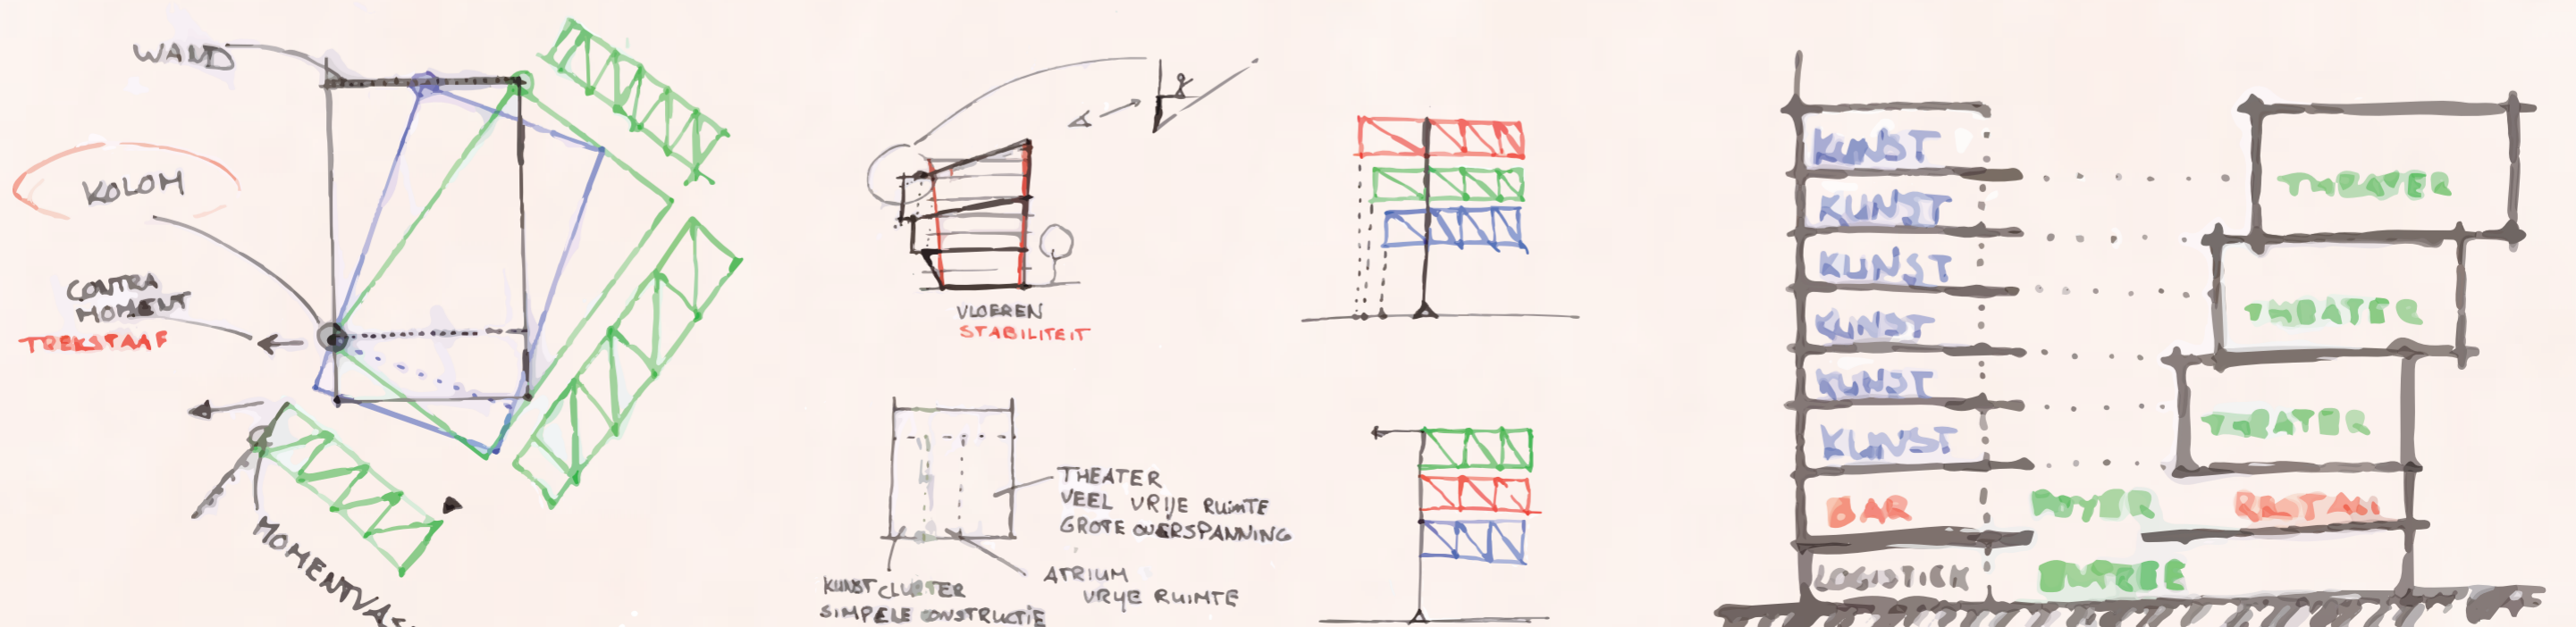 WAND
KOLOM
CONTRA
MOMENT
TREKSTAAF
VLOEREN
STABILITEIT
THEATER
VEEL VRIJE RUIMTE
GROTE OVERSPANNING
ATRIUM
VRYE RUIMTE
KUNSTCLUSTER
SIMPELE CONSTRUCTIE
KUNST
KUNST
KUNST
KUNST
KUNST
KUNST
THEATER
THEATER
THEATER
BAR
FOYER
LOGISTICK
ENTREE